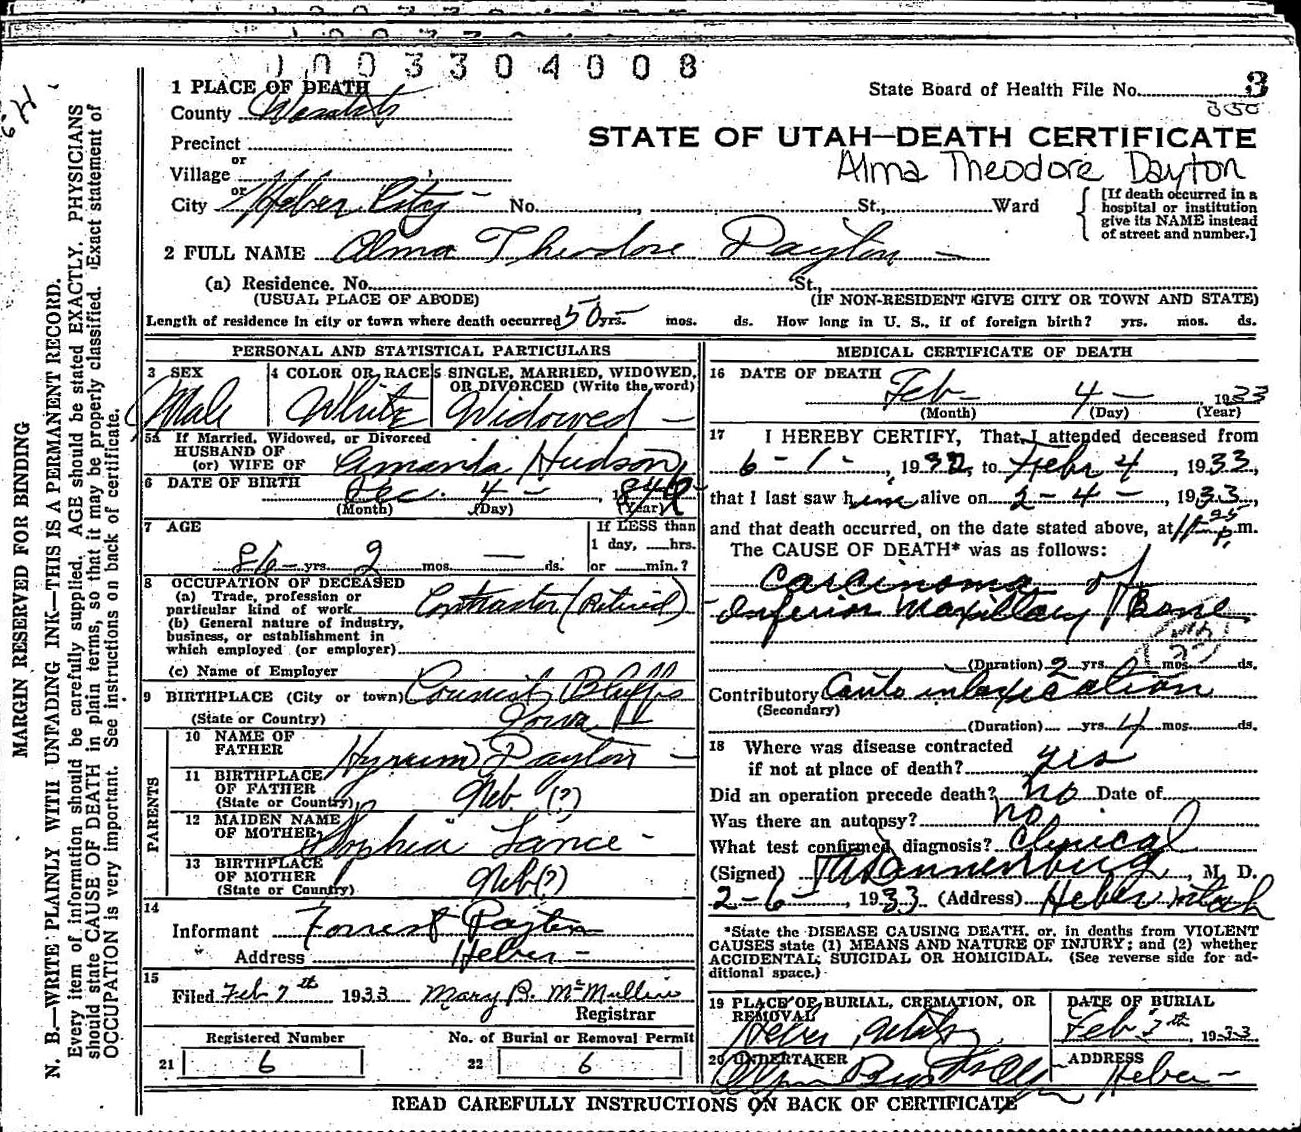 1003304008
State Board of Health File No. 3
350
1 PLACE OF DEATH
County Wasatch
STATE OF UTAH—DEATH CERTIFICATE
Precinct
or
Alma Theodore Dayton
Village
or
City Heber City No. , St., Ward
[If death occurred in a
hospital or institution
give its NAME instead
of street and number.]
2 FULL NAME Alma Theodore Dayton
(a) Residence. No. St.,
(USUAL PLACE OF ABODE) (IF NON-RESIDENT GIVE CITY OR TOWN AND STATE)
Length of residence in city or town where death occurred 50 yrs. mos. ds. How long in U. S., if of foreign birth? yrs. mos. ds.
PERSONAL AND STATISTICAL PARTICULARS
3 SEX
Male
4 COLOR OR RACE
White
5 SINGLE, MARRIED, WIDOWED,
OR DIVORCED (Write the word)
Widowed
5a If Married, Widowed, or Divorced
HUSBAND OF
(or) WIFE OF Amanda Hudson
6 DATE OF BIRTH Dec. 4 -
(Month) (Day) (Year)
7 AGE
86 yrs. 2 mos. — ds.
If LESS than
1 day, hrs.
or min.?
8 OCCUPATION OF DECEASED
(a) Trade, profession or
particular kind of work Contractor (Retired)
(b) General nature of industry,
business, or establishment in
which employed (or employer)
(c) Name of Employer
9 BIRTHPLACE (City or town) Council Bluffs
(State or Country) Iowa
PARENTS
10 NAME OF
FATHER Hyrum Dayton
11 BIRTHPLACE
OF FATHER
(State or Country) Neb (?)
12 MAIDEN NAME
OF MOTHER Sophia Lance
13 BIRTHPLACE
OF MOTHER
(State or Country) Neb (?)
14
Informant Forrest Dayton
" Address Heber
15
Filed Feb 7th 1933 Mary B. McMullin
Registrar
Registered Number
21 6
No. of Burial or Removal Permit
22 6
MEDICAL CERTIFICATE OF DEATH
16 DATE OF DEATH
Feb 4 — , 1933
(Month) (Day) (Year)
17 I HEREBY CERTIFY, That I attended deceased from
6 - 1 - , 1932, to Febr 4 , 1933,
that I last saw him alive on 2 - 4 - , 1933,
and that death occurred, on the date stated above, at 11 25 p. m.
The CAUSE OF DEATH* was as follows:
Carcinoma of
Inferior Maxillary Bone
(Duration) 2 yrs. mos. ds.
Contributory Auto intoxication
(Secondary)
(Duration) yrs. 4 mos. ds.
18 Where was disease contracted
if not at place of death? yes
Did an operation precede death? no Date of
Was there an autopsy? no
What test confirmed diagnosis? Clinical
(Signed) Dannenberg , M. D.
2-6- , 1933 (Address) Heber Utah
*State the DISEASE CAUSING DEATH, or, in deaths from VIOLENT
CAUSES state (1) MEANS AND NATURE OF INJURY; and (2) whether
ACCIDENTAL, SUICIDAL OR HOMICIDAL. (See reverse side for ad-
ditional space.)
19 PLACE OF BURIAL, CREMATION, OR
REMOVAL
Heber, Utah
DATE OF BURIAL
Feb 7th, 1933
20 UNDERTAKER
ADDRESS
Heber —
READ CAREFULLY INSTRUCTIONS ON BACK OF CERTIFICATE
MARGIN RESERVED FOR BINDING
N. B.—WRITE PLAINLY WITH UNFADING INK—THIS IS A PERMANENT RECORD.
Every item of information should be carefully supplied. AGE should be stated EXACTLY. PHYSICIANS
should state CAUSE OF DEATH in plain terms, so that it may be properly classified. Exact statement of
OCCUPATION is very important. See instructions on back of certificate.